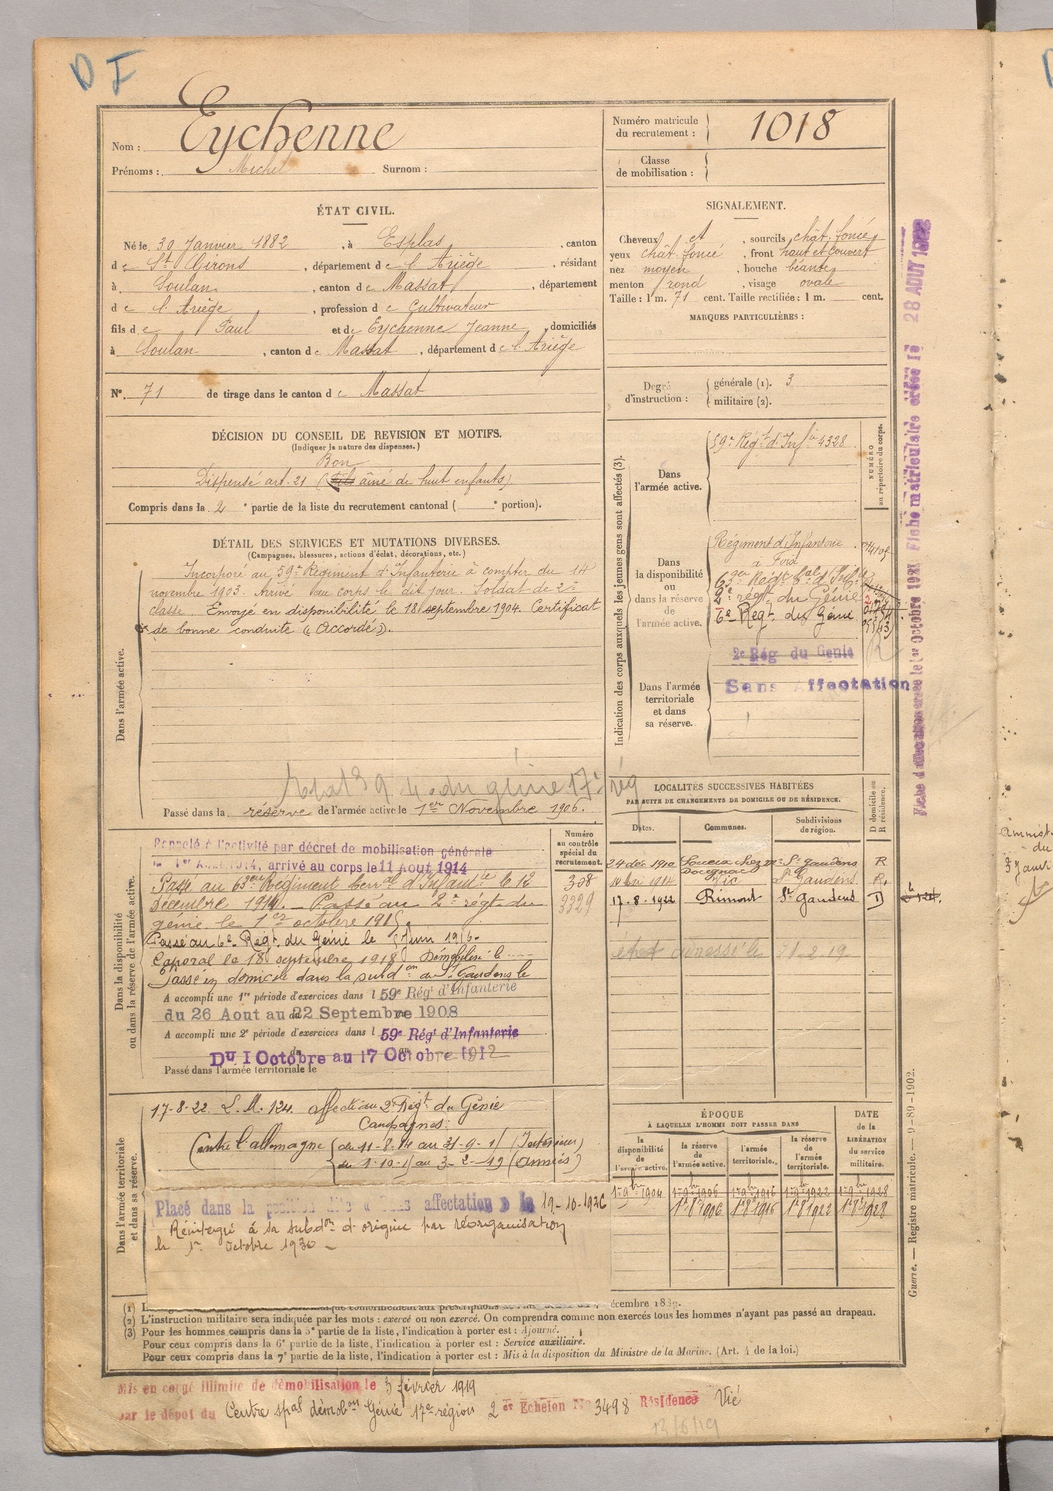 D F
Nom : Eychenne
Prénoms : Michel Surnom :
Numéro matricule du recrutement : 1018
Classe de mobilisation :
ÉTAT CIVIL.
Né le 30 Janvier 1882, à Esplas, canton
de St Girons, département de l'Ariège, résidant
à Soulan, canton de Massat, département
de l'Ariège, profession de Cultivateur
fils de Paul et de Eychenne Jeanne, domiciliés
à Soulan, canton de Massat, département de l'Ariège
N° 71 de tirage dans le canton de Massat
SIGNALEMENT.
Cheveux et, sourcils chât. foncé
yeux chât. foncé, front haut et couvert
nez moyen, bouche béante
menton rond, visage ovale
Taille : 1 m. 71 cent. Taille rectifiée : 1 m. cent.
MARQUES PARTICULIÈRES :
Degré d'instruction : générale (1). 3
militaire (2).
DÉCISION DU CONSEIL DE REVISION ET MOTIFS.
(Indiquer la nature des dispenses.)
Bon
Dispensé art. 21 (aîné de huit enfants)
Compris dans la 2e partie de la liste du recrutement cantonal ( e portion).
DÉTAIL DES SERVICES ET MUTATIONS DIVERSES.
(Campagnes, blessures, actions d'éclat, décorations, etc.)
Dans l'armée active.
Incorporé au 59e Régiment d'Infanterie à compter du 14
novembre 1903. Arrivé au corps le dit jour. Soldat de 2e
classe. Envoyé en disponibilité le 18 septembre 1904. Certificat
de bonne conduite "Accordé".
du génie 17e rég
Passé dans la réserve de l'armée active le 1er Novembre 1906.
Indication des corps auxquels les jeunes gens sont affectés (3).
NUMÉRO au répertoire du corps.
Dans l'armée active.
59e Régt d'Infie 4328
Dans la disponibilité ou dans la réserve de l'armée active.
Régiment d'Infanterie
à Foix
2e régt du Génie
6e Régt du Génie
Dans l'armée territoriale et dans sa réserve.
2e Rég du Génie
Sans Affectation
Dans la disponibilité ou dans la réserve de l'armée active.
Numéro au contrôle spécial du recrutement.
308
3329
Rappelé à l'activité par décret de mobilisation générale
du 1er Août 1914, arrivé au corps le 11 Aout 1914
Passé au 63e Régiment d'Infanterie le 12
Décembre 1914. Passé au 2e régt du
génie le 1er octobre 1915.
Passé au 6e Régt du Génie le 1 Juin 1916.
Caporal le 18 septembre 1918 Démobilisé le
Passé en domicile dans la subdon de St Gaudens le
A accompli une 1re période d'exercices dans l 59e Régt d'Infanterie
du 26 Aout au 22 Septembre 1908
A accompli une 2e période d'exercices dans l 59e Régt d'Infanterie
Du 1 Octobre au 17 Octobre 1912
Passé dans l'armée territoriale le
LOCALITÉS SUCCESSIVES HABITÉES
PAR SUITE DE CHANGEMENTS DE DOMICILE OU DE RÉSIDENCE.
Dates. Communes. Subdivisions de région. D domicile ou R résidence.
24 déc 1910 St Gaudens R
1914 Vic St Gaudens R
17-8-1922 Rimont St Gaudens D
Dans l'armée territoriale et dans sa réserve.
17-8-22 L.M. 124. affecté au 2e Régt du Génie
Campagnes :
Contre l'allemagne du 11-8-14 au 31-9-15 (Intérieur)
du 1-10-15 au 3-2-19 (armées)
Placé dans la position dite "sans affectation" le 19-10-1926
Réintégré à sa subdon d'origine par réorganisation
le 1er octobre 1930
ÉPOQUE
À LAQUELLE L'HOMME DOIT PASSER DANS
DATE de la LIBÉRATION du service militaire.
la disponibilité de l'armée active. la réserve de l'armée active. l'armée territoriale. la réserve de l'armée territoriale.
1er 9bre 1904 1er 9bre 1906 1er 9bre 1916 1er 9bre 1922 1er 9bre 1928
1er 8 1906 1er 8 1916 1er 8 1922 1er 8 1928
décembre 1889.
(2) L'instruction militaire sera indiquée par les mots : exercé ou non exercé. On comprendra comme non exercés tous les hommes n'ayant pas passé au drapeau.
(3) Pour les hommes compris dans la 3e partie de la liste, l'indication à porter est : Ajourné.
Pour ceux compris dans la 6e partie de la liste, l'indication à porter est : Service auxiliaire.
Pour ceux compris dans la 7e partie de la liste, l'indication à porter est : Mis à la disposition du Ministre de la Marine. (Art. 4 de la loi.)
Mis en congé illimité de démobilisation le 3 février 1919
par le dépôt du Centre spal démobon Génie 17e région 2 e Echelon N° 3498 Résidence Vié
13/6/19
Guerre. — Registre matricule. — 9-89-1902.
Fiche matriculaire créée le 28 AOUT